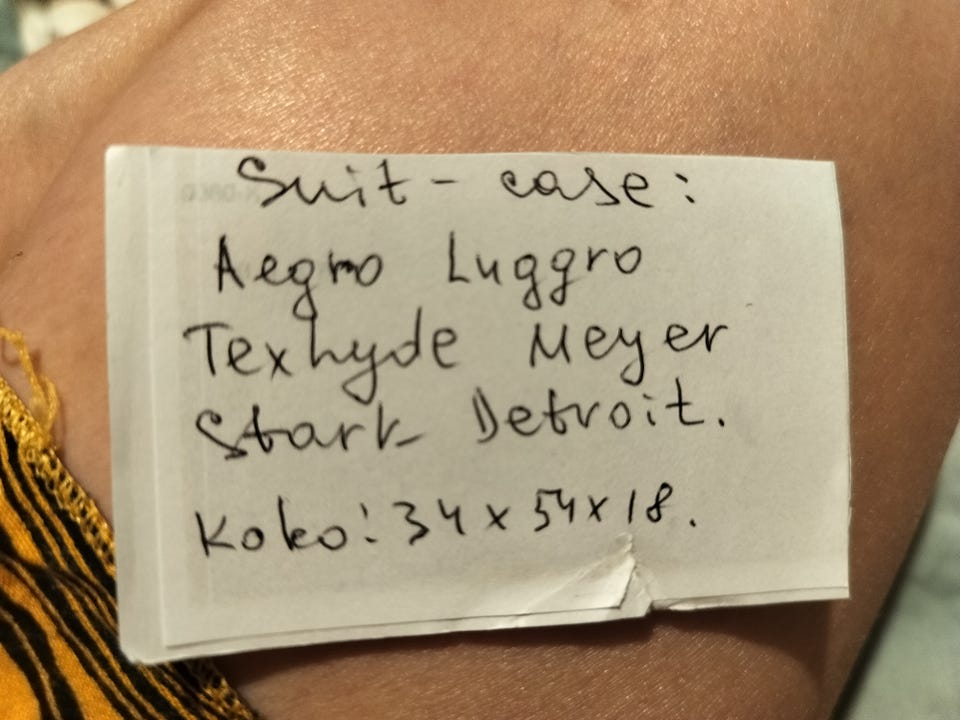 Suit - case:
Aegro Luggro
Texhyde Meyer
Stark Detroit.
Koko: 34 x 54 x 18.